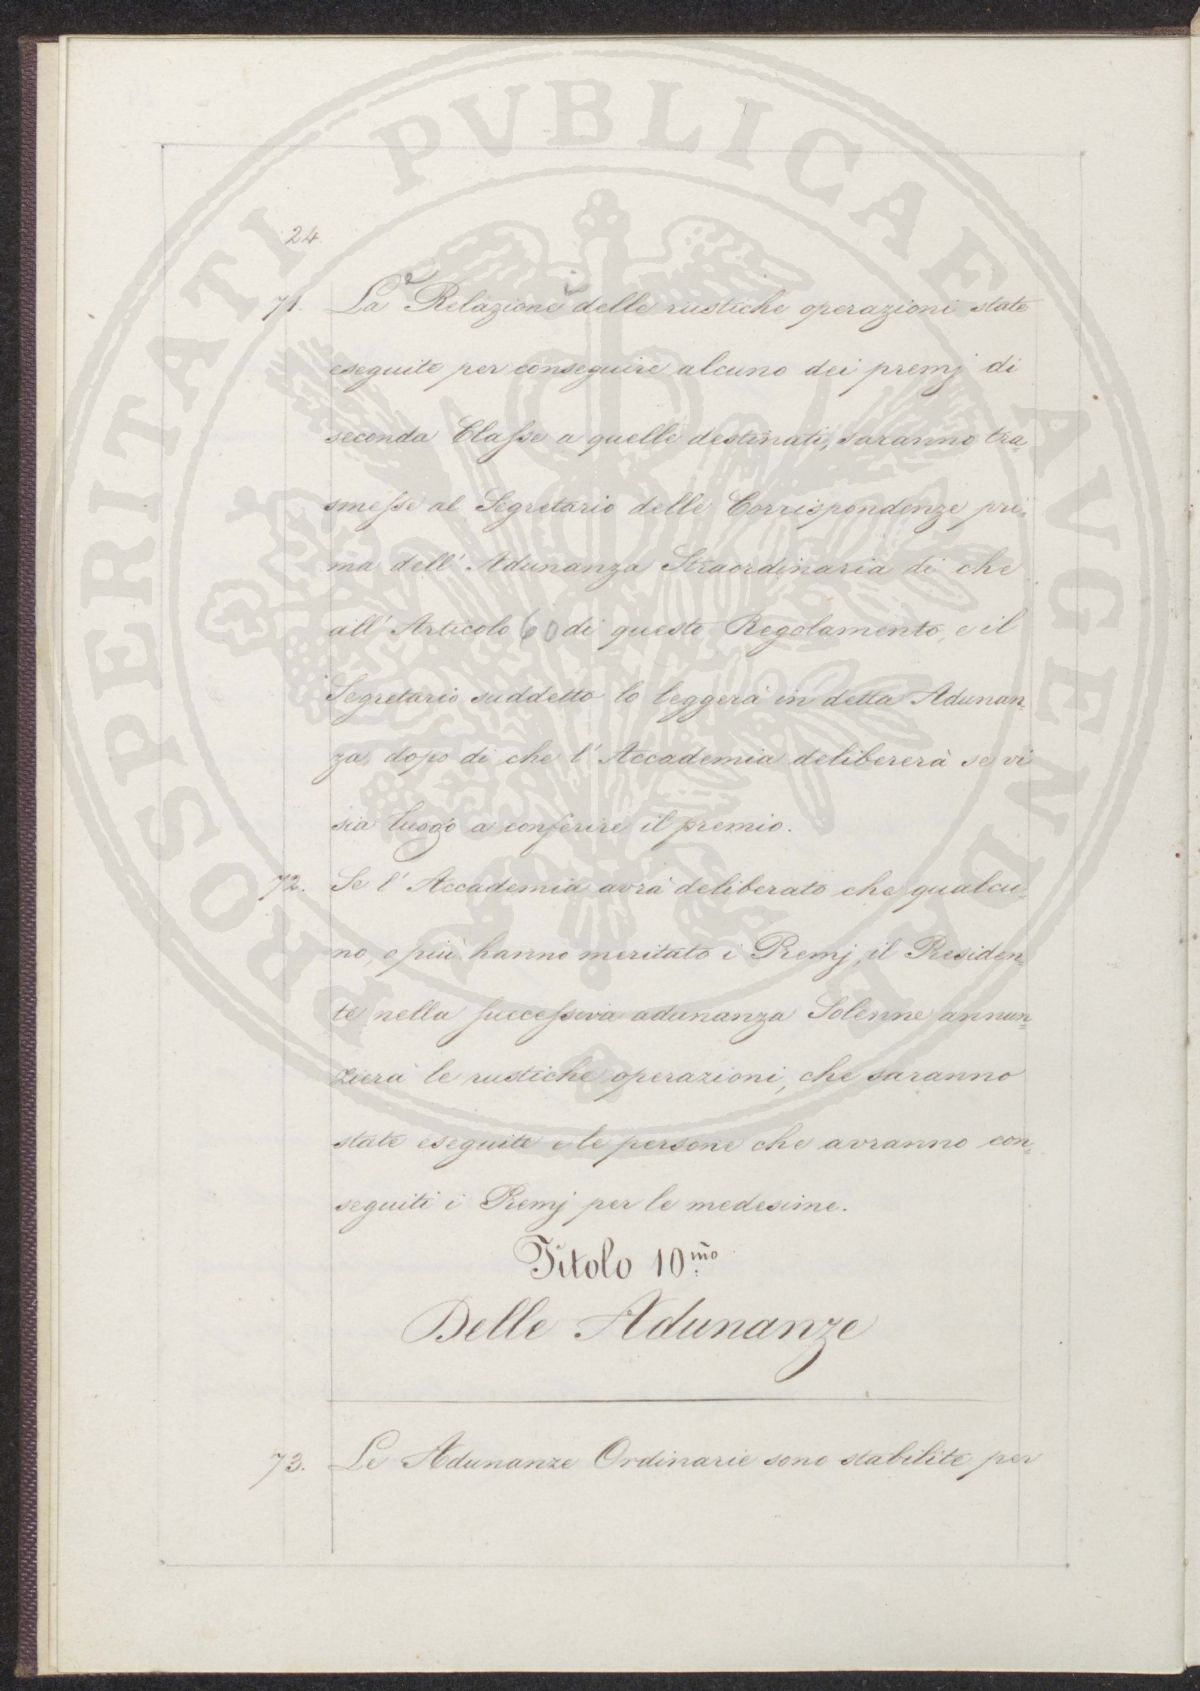 PROSPERITATI PVBLICAE AVGENDAE
24
71. La Relazione delle rustiche operazioni state
eseguite per conseguire alcuno dei premj di
seconda Classe a quelle destinati, saranno tra-
smesse al Segretario delle Corrispondenze pri-
ma dell' Adunanza Straordinaria di che
all' Articolo 60 di questo Regolamento, e il
Segretario suddetto lo leggerà in detta Adunan-
za, dopo di che l' Accademia delibererà se vi
sia luogo a conferire il premio.
72. Se l' Accademia avrà deliberato che qualcu-
no, o più hanno meritato i Premj, il Presiden-
te nella successiva adunanza Solenne annun-
zierà le rustiche operazioni, che saranno
state eseguite e le persone che avranno con-
seguiti i Premj per le medesime.
Titolo 10mo
Delle Adunanze
73. Le Adunanze Ordinarie sono stabilite per